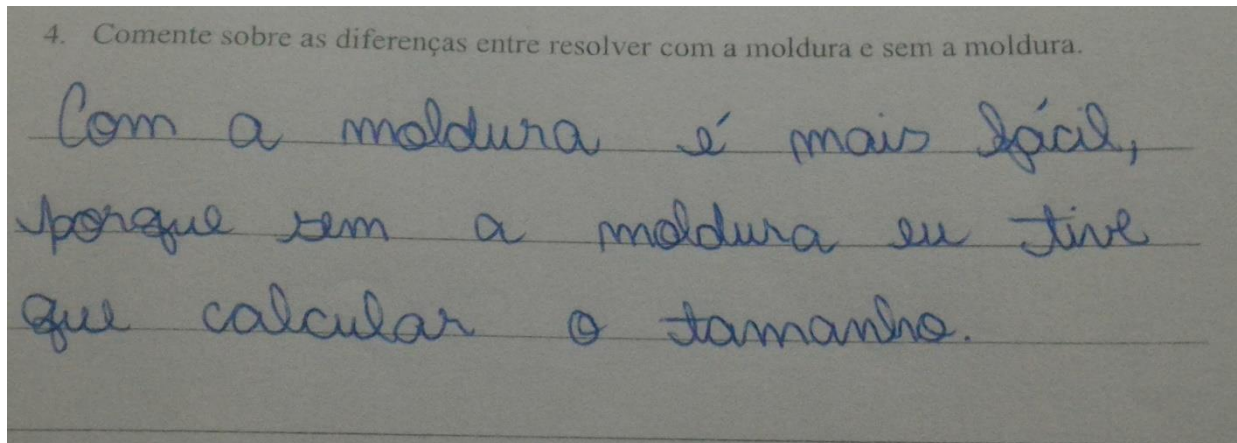 4. Comente sobre as diferenças entre resolver com a moldura e sem a moldura.
Com a moldura é mais fácil,
porque sem a moldura eu tive
que calcular o tamanho.